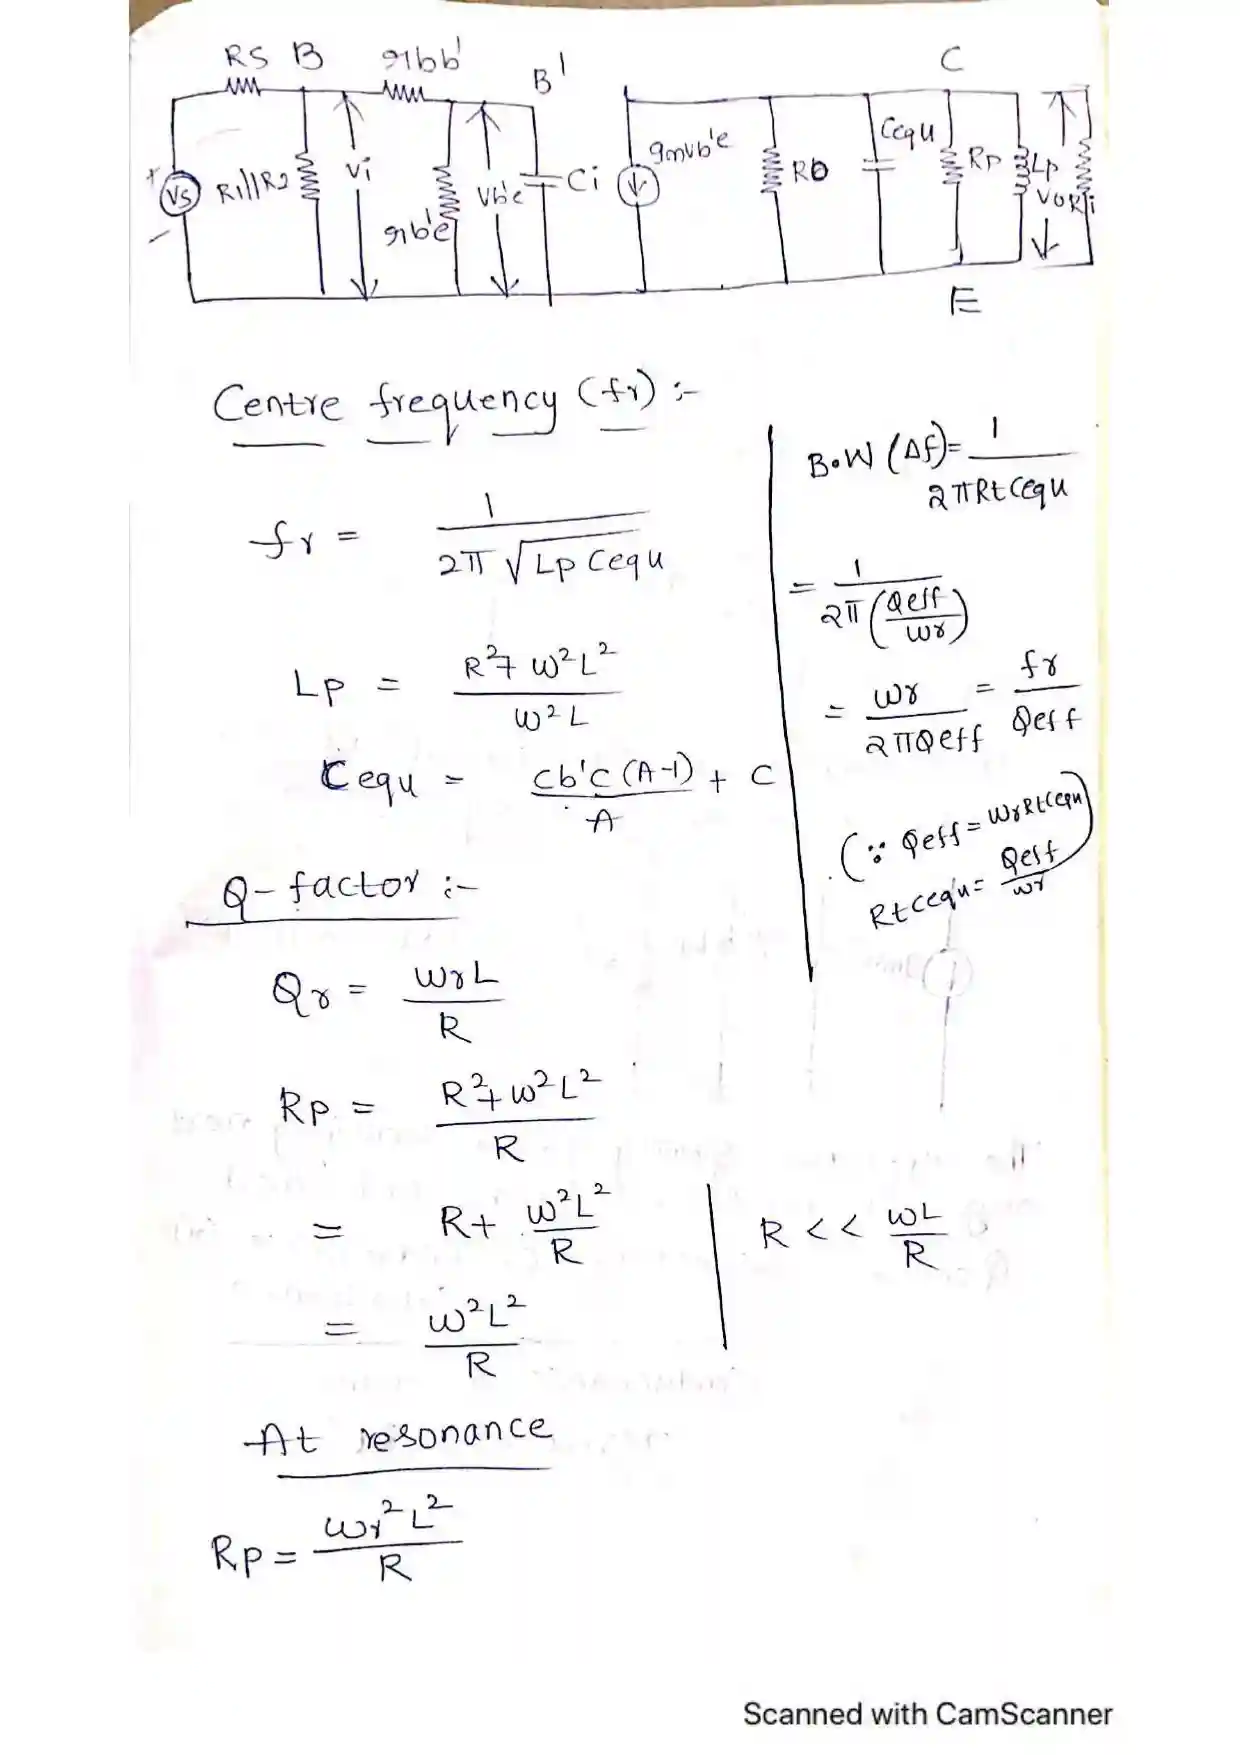 RS B rbb' B' C
+ Vs - R1||R2 Vi rb'e Vb'e Ci gmvb'e Ro Cequ Rp Lp Vo Ri
E
Centre frequency (fr) :-
fr = 1 / 2π √Lp Cequ
Lp = R²+ w²L² / w²L
Cequ = Cb'c (A-1) / A + C
Q-factor :-
Qr = wrL / R
Rp = R²+ w²L² / R
= R+ w²L² / R
= w²L² / R
At resonance
Rp = wr²L² / R
B.W (Δf)= 1 / 2πRtCequ
= 1 / 2π (Qeff / wr)
= wr / 2πQeff = fr / Qeff
(∵ Qeff = wrRtCequ)
RtCequ = Qeff / wr
R << wL / R
Scanned with CamScanner